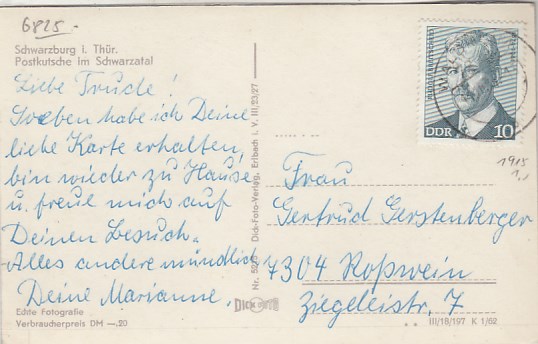 6825-
Schwarzburg i. Thür.
Postkutsche im Schwarzatal
Liebe Trude!
Soeben habe ich Deine
liebe Karte erhalten,
bin wieder zu Hause
u. freue mich auf
Deinen Besuch.
Alles andere mündlich
Deine Marianne.
Echte Fotografie
Verbraucherpreis DM —.20
Dick-Foto-Verlag, Erlbach i. V. III/23/27
DICK
DDR 10
1915
1,-
Frau
Gertrud Gerstenberger
7304 Roßwein
Ziegeleistr. 7
III/18/197 K 1/62